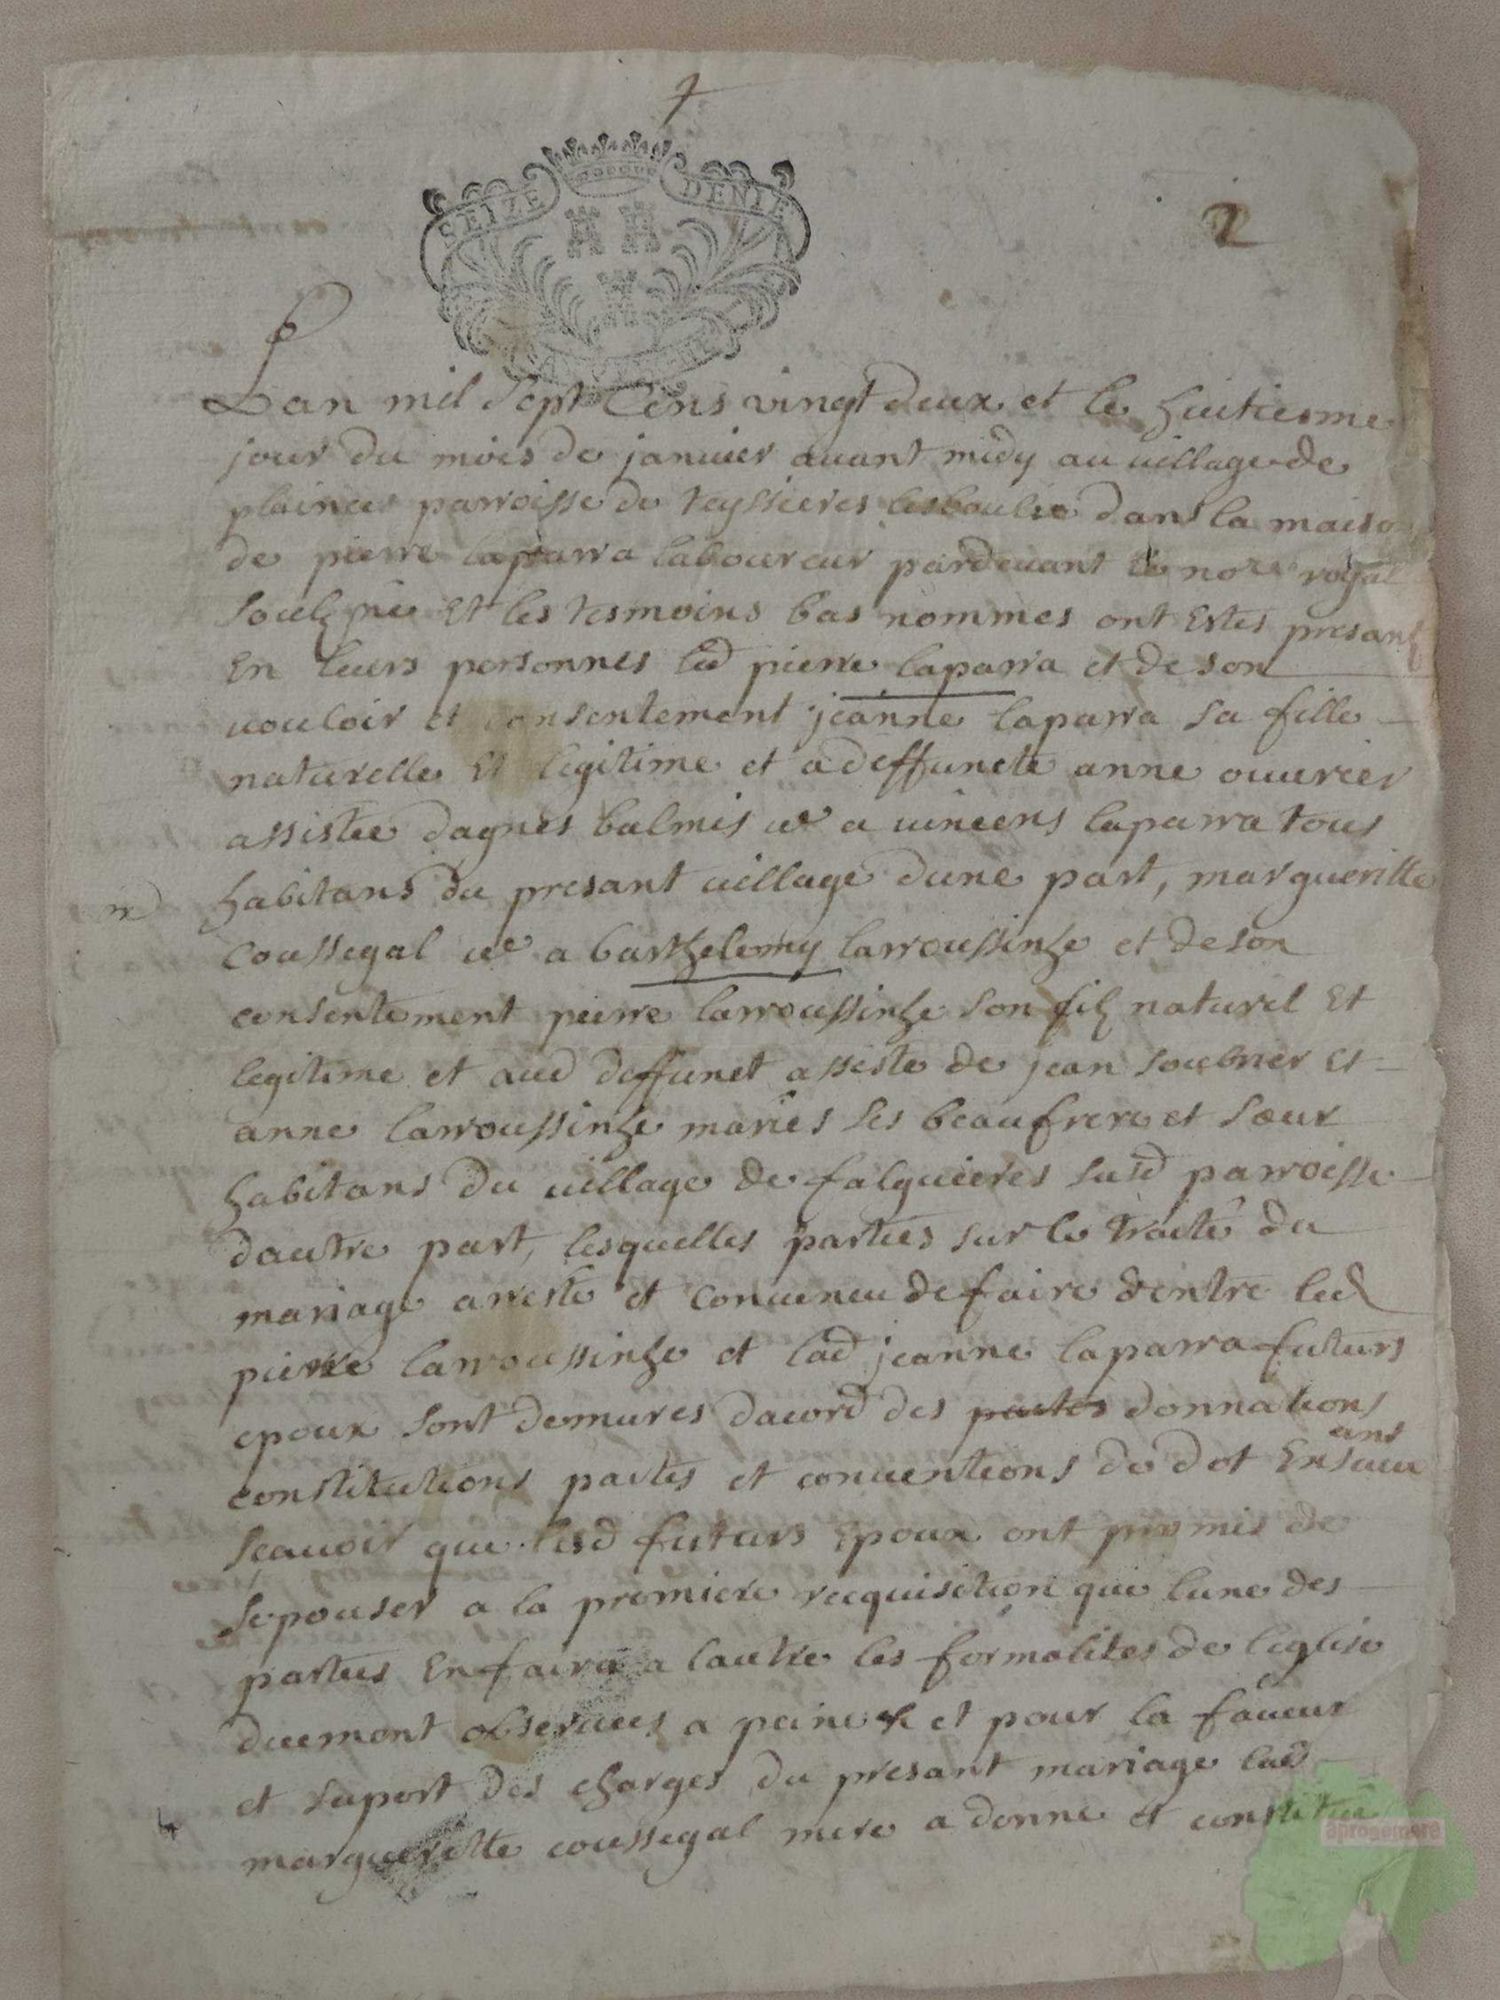 2
SEIZE DENIE
Lan mil sept Cens vingt deux et le huitiesme
jour du mois de janvier avant midy au village de
plaines parroisse de teyssieres lesboulie dans la maiso
de pierre laparra laboureur pardevant le nore royal
soubzne et les tesmoins bas nommes ont estes presan
En leurs personnes led pierre laparra et de son
vouloir et consentement jeanne laparra sa fille
naturelle Et legitime et a deffuncte anne ouvrier
assistee dagnes balmis ve a vincens laparra tous
habitans du presant village dune part, marguerille
coussegal ve a barthelemy larroussinhe et de son
consentement pierre larroussinhe son filz naturel Et
legitime et aud deffunct assiste de jean soubrier et
anne larroussinhe maries ses beaufrere et sœur
habitans du village de falguieres susd parroisse
dautre part, lesquelles parties sur le traité du
mariage arresté et conveneu de faire dentre led
pierre larroussinhe et lad jeanne laparra futurs
epoux sont demures dacord des pactes donnations
constitutions pactes et conventions de dot
ans
Scavoir que lesd futurs Epoux ont promis de
sepouser a la premiere recquisition que lune des
parties En faira a lautre les formalites de leglise
duemont observees a peine et pour la faveur
et suport des charges du presant mariage lad
margueritte coussegal mere a donné et constitué
aprogemere